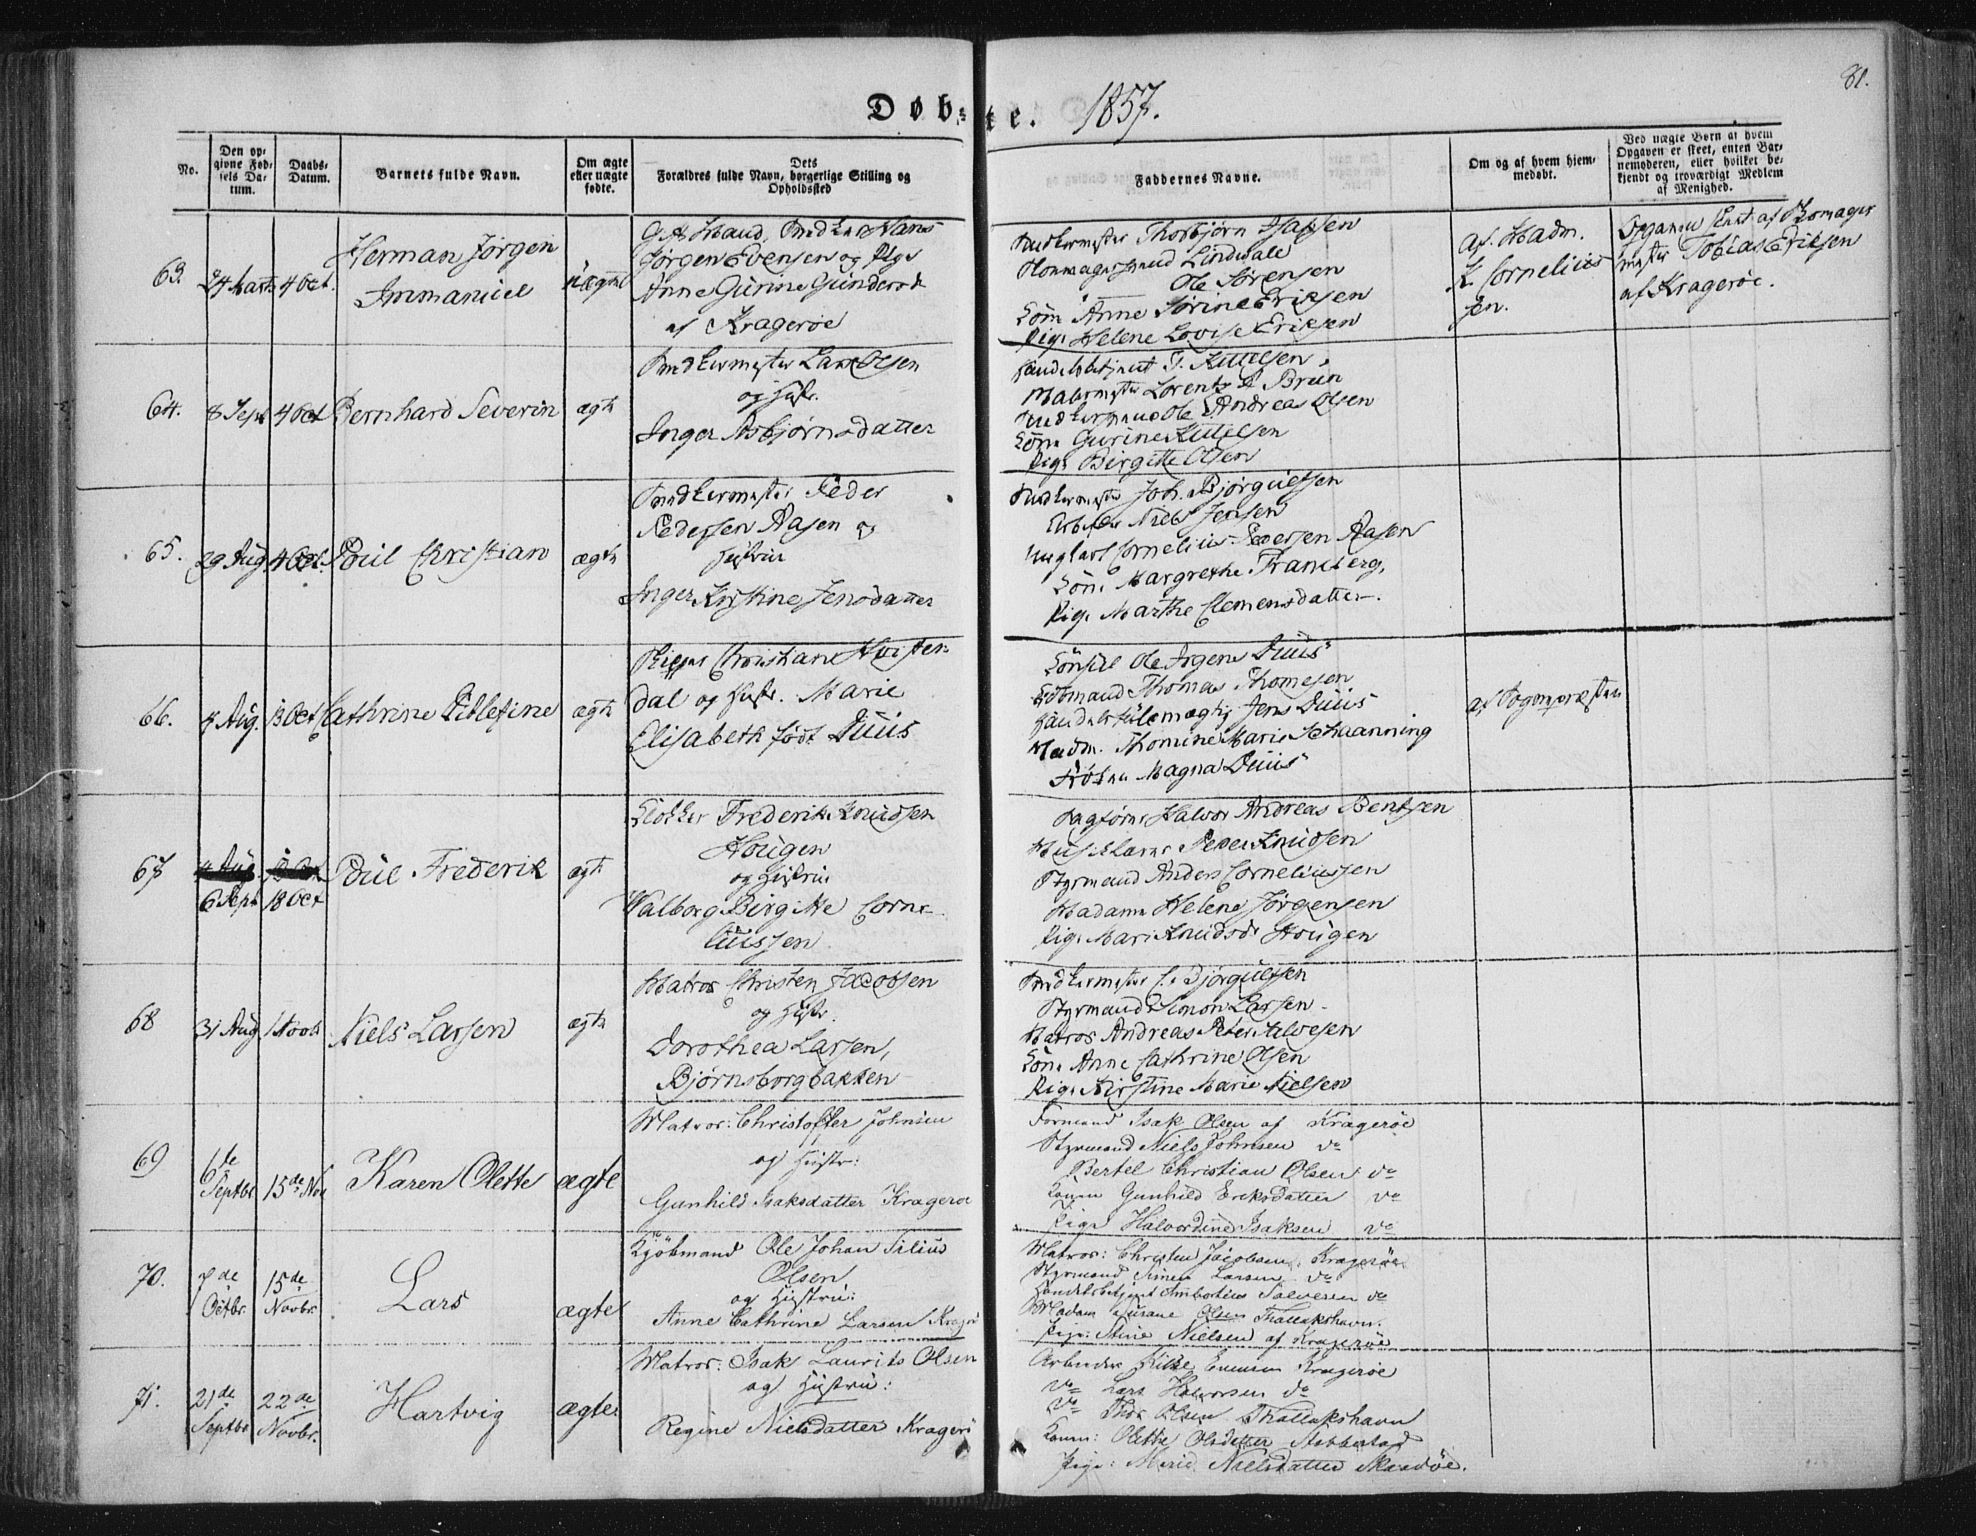 Døb=
te. 1857.
81.
No.
Den op=
givne Fød=
sels Da=
tum.
Daabs=
Datum.
Barnets fulde Navn.
Om ægte
eller uægte
fødte.
Dets
Forældres fulde Navn, borgerlige Stilling og
Opholdssted
Faddernes Navne.
Om og af hvem hjem=
medøbt.
Ved uægte Børn af hvem
Opgaven er skeet, enten Bar=
nemoderen, eller hvilket be=
kjendt og troværdigt Medlem
af Menighed.
63.
4 Oct.
Herman Jørgen
Immanuel
uægte
Hans
Jørgen Evensen og Pige
Anne Gurine Gundersd
af Kragerøe
Thorbjørn
Lindedale
Ole Sørensen
Anne Sørine Eriksen
Pige Helene Lovise Eriksen
af Madm.
K. Cornelius
sen.
Tobias Eriksen
af Kragerøe.
64.
8 Sept
4 Oct
Bernhard Severin
ægte
Snedkermester Lars Olsen
og Hustr.
Inger Asbjørnsdatter
T. Kittelsen
Malermester Lorentz A Bruun
Ole Andreas Olsen
Kone Gurine Kittelsen
Pige Birgitte Olsen
65.
29 Aug.
4 Oct.
Poul Christian
ægte
Snedkermester Peder
Pedersen Aasen og
Hustrue
Inger Kirstine Jensdatter
Snedkermester Joh. Bjørgulfsen
Niels Jensen
Ungkarl Cornelius Pedersen Aasen
Kone Margrethe Framberg,
Pige Marthe Clemensdatter.
66.
4 Aug.
13 Oct
Cathrine Ditlefine
ægte
Christian
dal og Hustr. Marie
Elisabeth født Duus
Consul Ole Jrgens Duus
Thomas Thomesen
Handelsfuldmægtig Jens Duus
Madm. Thomine Marie Schaanning
Frøken Magna Duus
af Sognepræsten
67
4 Aug
13 Oct
6 Sept
18 Oct
Poul Frederik
ægte
Klokker Frederik Knudsen
Hougen
og Hustrue
Walborg Birgitte Corne
liussen
Halvor Andreas Bentsen
Peder Knudsen
Styrmand Anders Corneliussen
Madame Helene Jørgensen
Pige Mari Knudsdr Hougen
68
31 Aug
1 Novb
Niels Larsen
ægte
Matros Christen Jacobsen
og Hustr.
Dorothea Larsen,
Bjørnsborgbakken
Snedkermester C. Bjørgulfsen
Styrmand Simon Larsen
Matros Andreas Peter Alvesen
Kone Anne Cathrine Olsen
Pige Kirstine Marie Nielsen
69
6te
Septbr
15de Nov
Karen Olette
ægte
Matros: Christoffer Johnsen
og Hustr:
Gunhild Isaksdatter Kragerøe
Formand Isak Olsen af Kragerøe
Styrmand Niels Johnsen do
Bertel Christian Olsen do
Konen Gunhild Eriksdatter do
Pige Halvordine Isaksen do
70.
7de
Octbr.
15de
Novbr.
Lars
ægte
Kjøbmand Ole Johan Tilius
Olsen
og Hustru:
Anne Cathrine Larsen Kragerø
Matros: Christen Jacobsen, Kragerøe
Styrmand Simon Larsen do
Handelsbetjent Ambortius Salvesen do
Madam Susane Olsen Thallakshavn.
Pige: Stine Nielsen af Kragerøe
71.
21de
Septbr
22de
Novbr.
Hartvig
ægte
Matros: Isak Laurits Olsen
og Hustru:
Regine Nielsdatter Kragerø
Arbeider Kragerøe
do Lars Halvorsen do
do Thor Olsen Thallakshavn
Konen: Olette Olsdatter Stabbestad
Pige: Marie Nielsdatter Skaadøe.